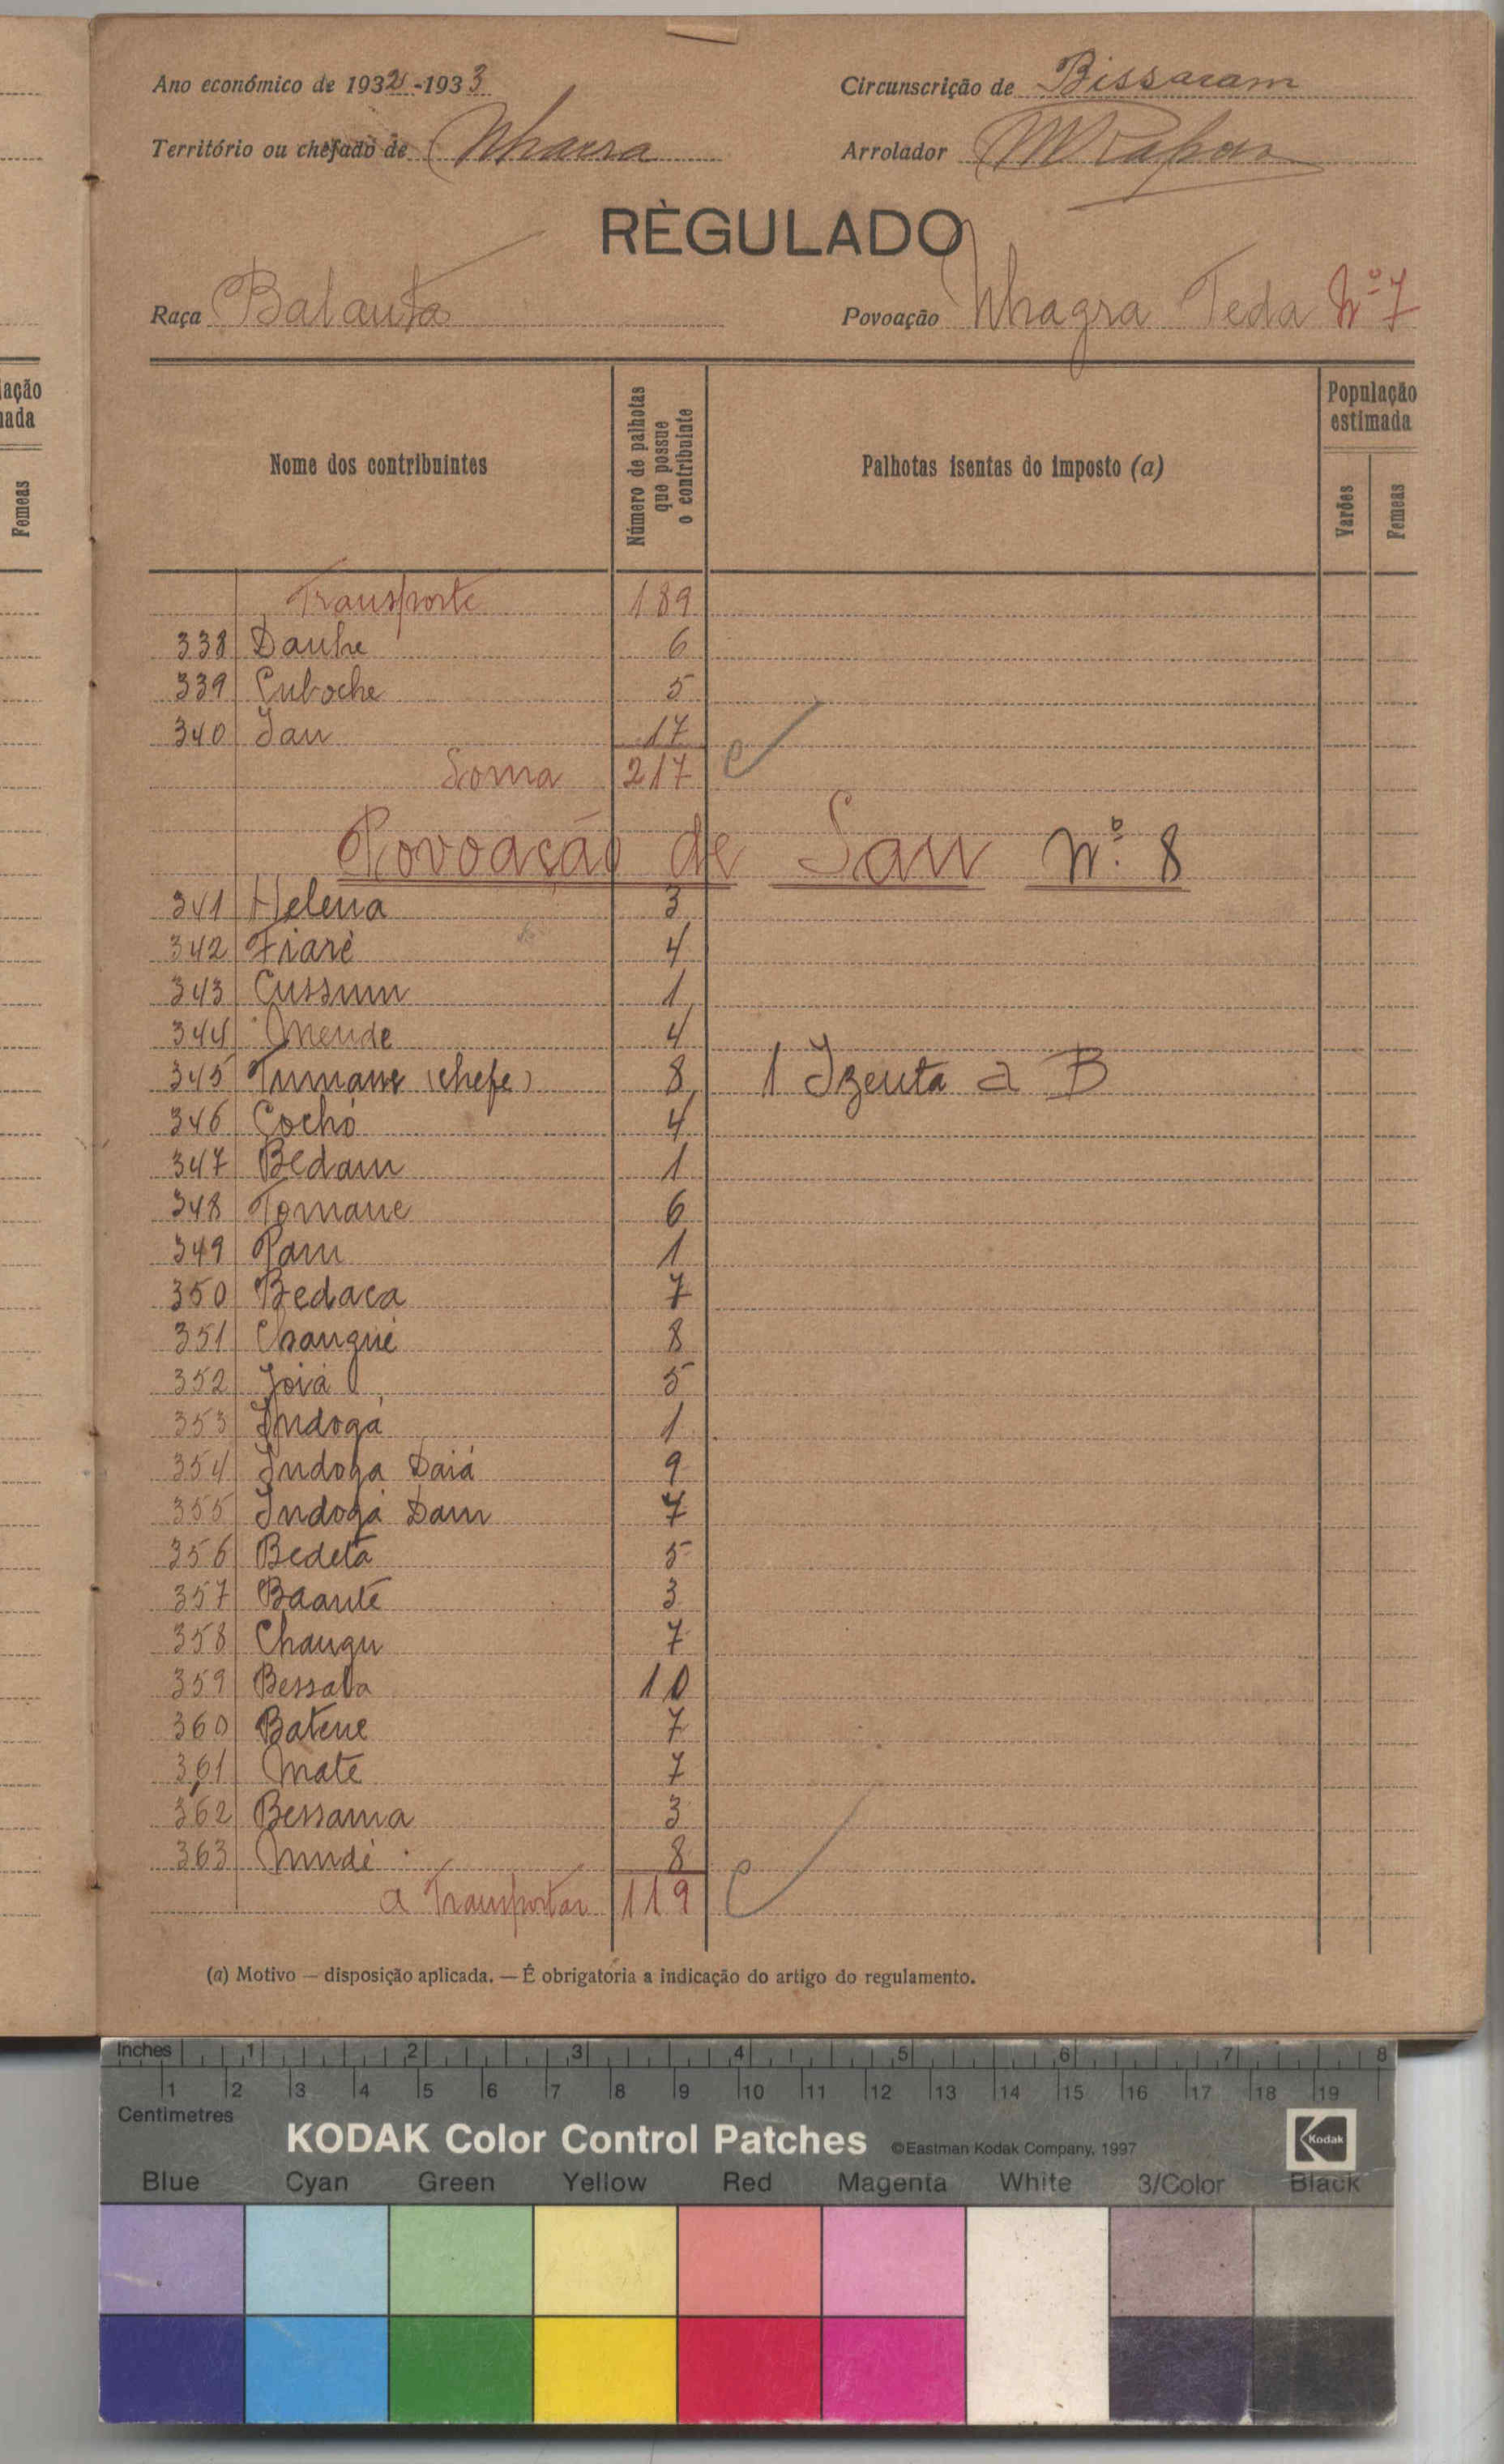 Ano económico de 1932-1933
Circunscrição de Bissoram
Território ou chefado de Nhacra
Arrolador
RÈGULADO
Raça Balanta
Povoação Nhagra Teda Nº 7
Nome dos contribuintes
Número de palhotas que possue o contribuinte
Palhotas isentas do imposto (a)
População estimada
Varões
Femeas
lação
nada
Femeas
Transporte 189
338 Danhe 6
339 Cuboche 5
340 Jau 17
Soma 217
Povoação de Sau Nº. 8
341 Helena 3
342 Fiaré 4
343 Cussum 1
344 Mende 4
345 Tumane (chefe) 8 1 Izenta a B
346 Cochó 4
347 Bedam 1
348 Tomane 6
349 Pam 1
350 Bedaca 7
351 Changué 8
352 Joiá 5
353 Indogá 1
354 Indoga Daiá 9
355 Indogá Dam 7
356 Bedeta 5
357 Baante 3
358 Changu 7
359 Bessala 10
360 Batene 7
361 Mate 7
362 Bessama 3
363 Mudé 8
a Transportar 119
(a) Motivo — disposição aplicada. — É obrigatória a indicação do artigo do regulamento.
Inches 1 2 3 4 5 6 7 8
1 2 3 4 5 6 7 8 9 10 11 12 13 14 15 16 17 18 19
Centimetres
KODAK Color Control Patches ©Eastman Kodak Company, 1997 Kodak
Blue Cyan Green Yellow Red Magenta White 3/Color Black